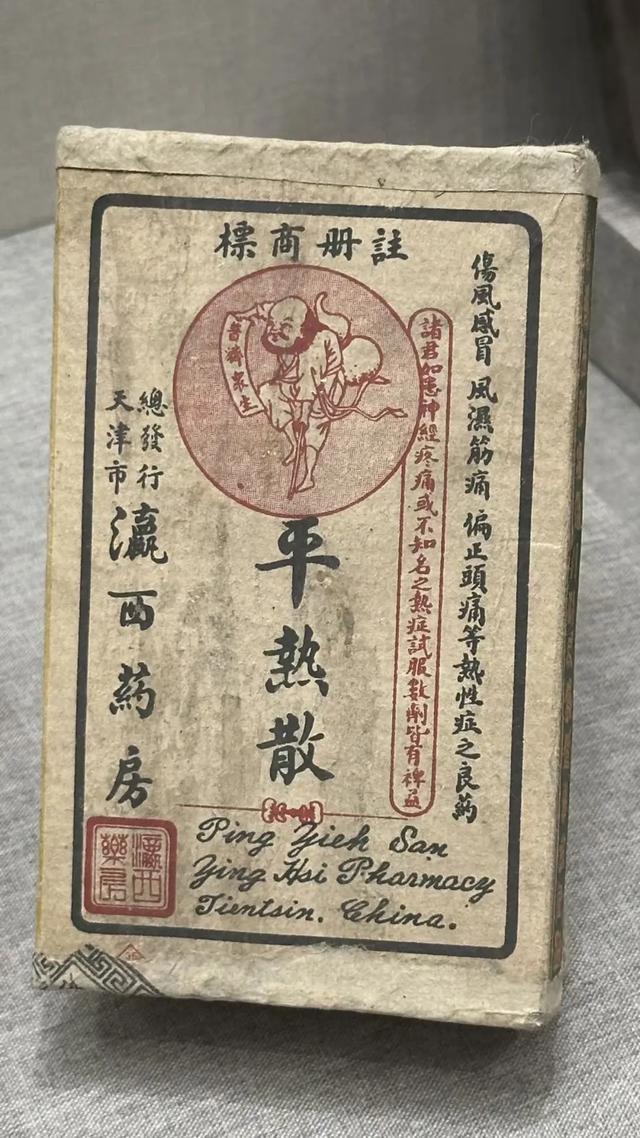 註册商標
傷風感冒 風濕筋痛 偏正頭痛等熱性症之良药
諸君如患神經疼痛或不知名之熱症試服數劑皆有裨益
普濟衆生
平熱散
總發行
天津市
瀛西药房
瀛西
藥房
Ping Jieh San
Ying Hsi Pharmacy
Tientsin. China.